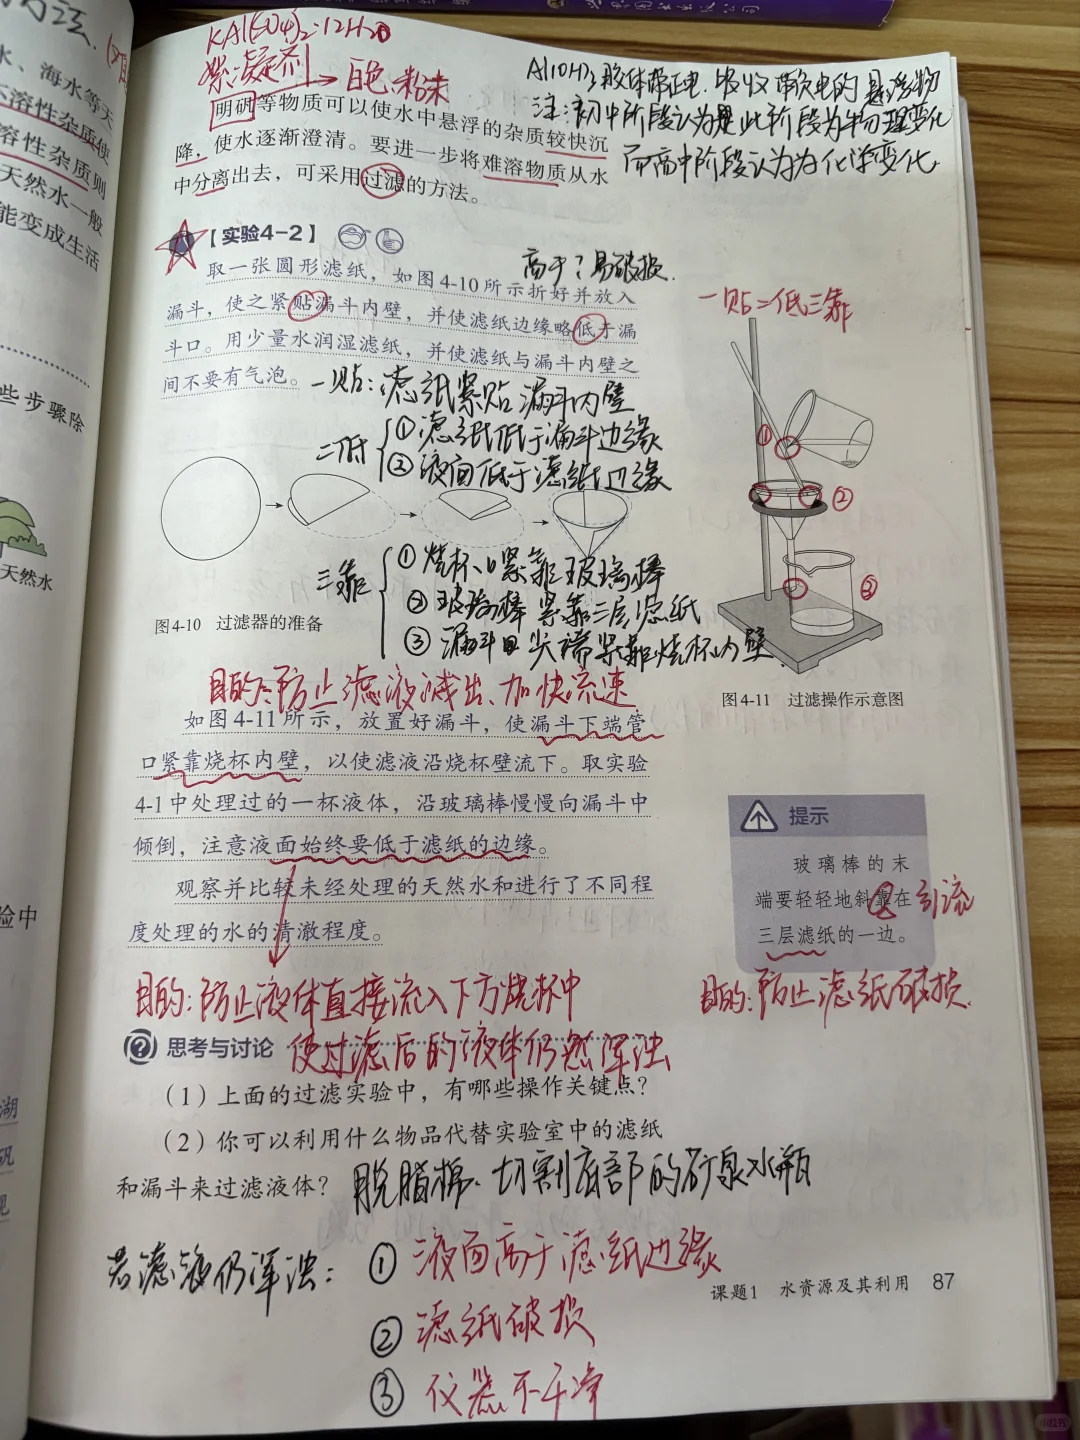 水、海水等天
不溶性杂质使
溶性杂质则
天然水一般
能变成生活
些步骤除
天然水
验中
湖
矾
KAl(SO4)2·12H2O
絮凝剂→白色粉末
Al(OH)3胶体带正电，吸收带负电的悬浮物
注:初中阶段认为是此阶段为物理变化
而高中阶段认为为化学变化
明矾等物质可以使水中悬浮的杂质较快沉
降，使水逐渐澄清。要进一步将难溶物质从水
中分离出去，可采用过滤的方法。
【实验4-2】
高于？易破损.
取一张圆形滤纸，如图4-10所示折好并放入
漏斗，使之紧贴漏斗内壁，并使滤纸边缘略低于漏
斗口。用少量水润湿滤纸，并使滤纸与漏斗内壁之
间不要有气泡。
一贴二低三靠
一贴:滤纸紧贴漏斗内壁
二低
①滤纸低于漏斗边缘
②液面低于滤纸边缘
三靠
①烧杯口紧靠玻璃棒
②玻璃棒紧靠三层滤纸
③漏斗口尖端紧靠烧杯内壁
①
②
③
图4-10 过滤器的准备
图4-11 过滤操作示意图
目的:防止滤液溅出、加快流速
如图4-11所示，放置好漏斗，使漏斗下端管
口紧靠烧杯内壁，以使滤液沿烧杯壁流下。取实验
4-1中处理过的一杯液体，沿玻璃棒慢慢向漏斗中
倾倒，注意液面始终要低于滤纸的边缘。
观察并比较未经处理的天然水和进行了不同程
度处理的水的清澈程度。
提示
玻璃棒的末
端要轻轻地斜靠在
三层滤纸的一边。
引流
目的:防止滤纸破损.
目的:防止液体直接流入下方烧杯中
使过滤后的液体仍然浑浊
思考与讨论
（1）上面的过滤实验中，有哪些操作关键点？
（2）你可以利用什么物品代替实验室中的滤纸
和漏斗来过滤液体？
脱脂棉、切割底部的矿泉水瓶
若滤液仍浑浊:
①液面高于滤纸边缘
②滤纸破损
③仪器不干净
课题1 水资源及其利用 87
小红书